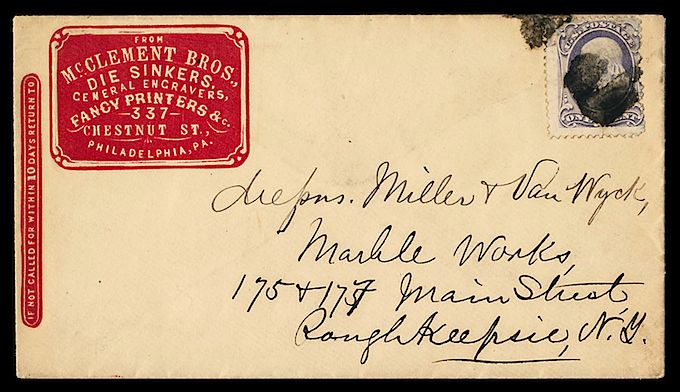 FROM
McCLEMENT BROS.,
DIE SINKERS,
GENERAL ENGRAVERS,
FANCY PRINTERS &c.
—337—
CHESTNUT ST.,
PHILADELPHIA, PA.
IF NOT CALLED FOR WITHIN 10 DAYS RETURN TO
U.S. POSTAGE
ONE CENT
Messrs. Miller & Van Wyck,
Marble Works,
175 & 177 Main Street
Poughkeepsie, N.Y.